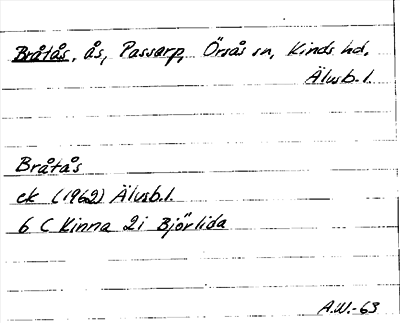 Bråtås, ås, Passarp, Örsås sn, Kinds hd,
Älvsb. l.
Bråtås
ek (1962) Älvsb. l.
6 C Kinna 2i Björlida
A.W.-63